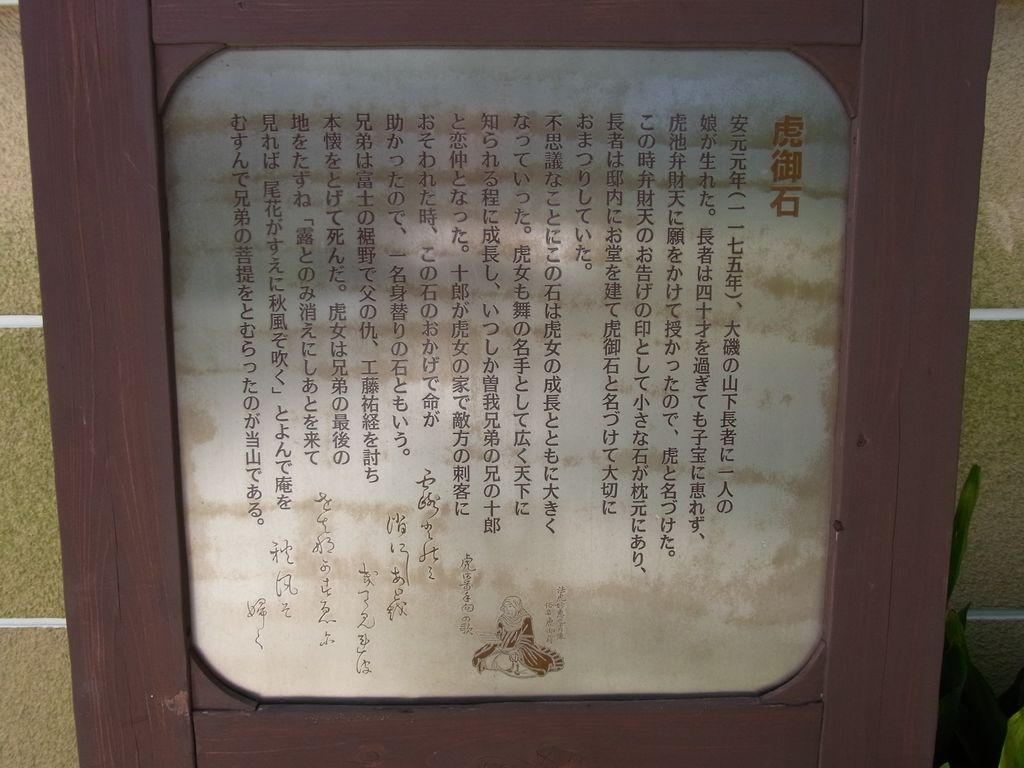 虎御石
安元元年(一一七五年)、大磯の山下長者に一人の
娘が生れた。長者は四十才を過ぎても子宝に恵れず、
虎池弁財天に願をかけて授かったので、虎と名づけた。
この時弁財天のお告げの印として小さな石が枕元にあり、
長者は邸内にお堂を建て虎御石と名づけて大切に
おまつりしていた。
不思議なことにこの石は虎女の成長とともに大きく
なっていった。虎女も舞の名手として広く天下に
知られる程に成長し、いつしか曽我兄弟の兄の十郎
と恋仲となった。十郎が虎女の家で敵方の刺客に
おそわれた時、この石のおかげで命が
助かったので、一名身替りの石ともいう。
兄弟は富士の裾野で父の仇、工藤祐経を討ち
本懐をとげて死んだ。虎女は兄弟の最後の
地をたずね「露とのみ消えにしあとを来て
見れば 尾花がすえに秋風ぞ吹く」とよんで庵を
むすんで兄弟の菩提をとむらったのが当山である。